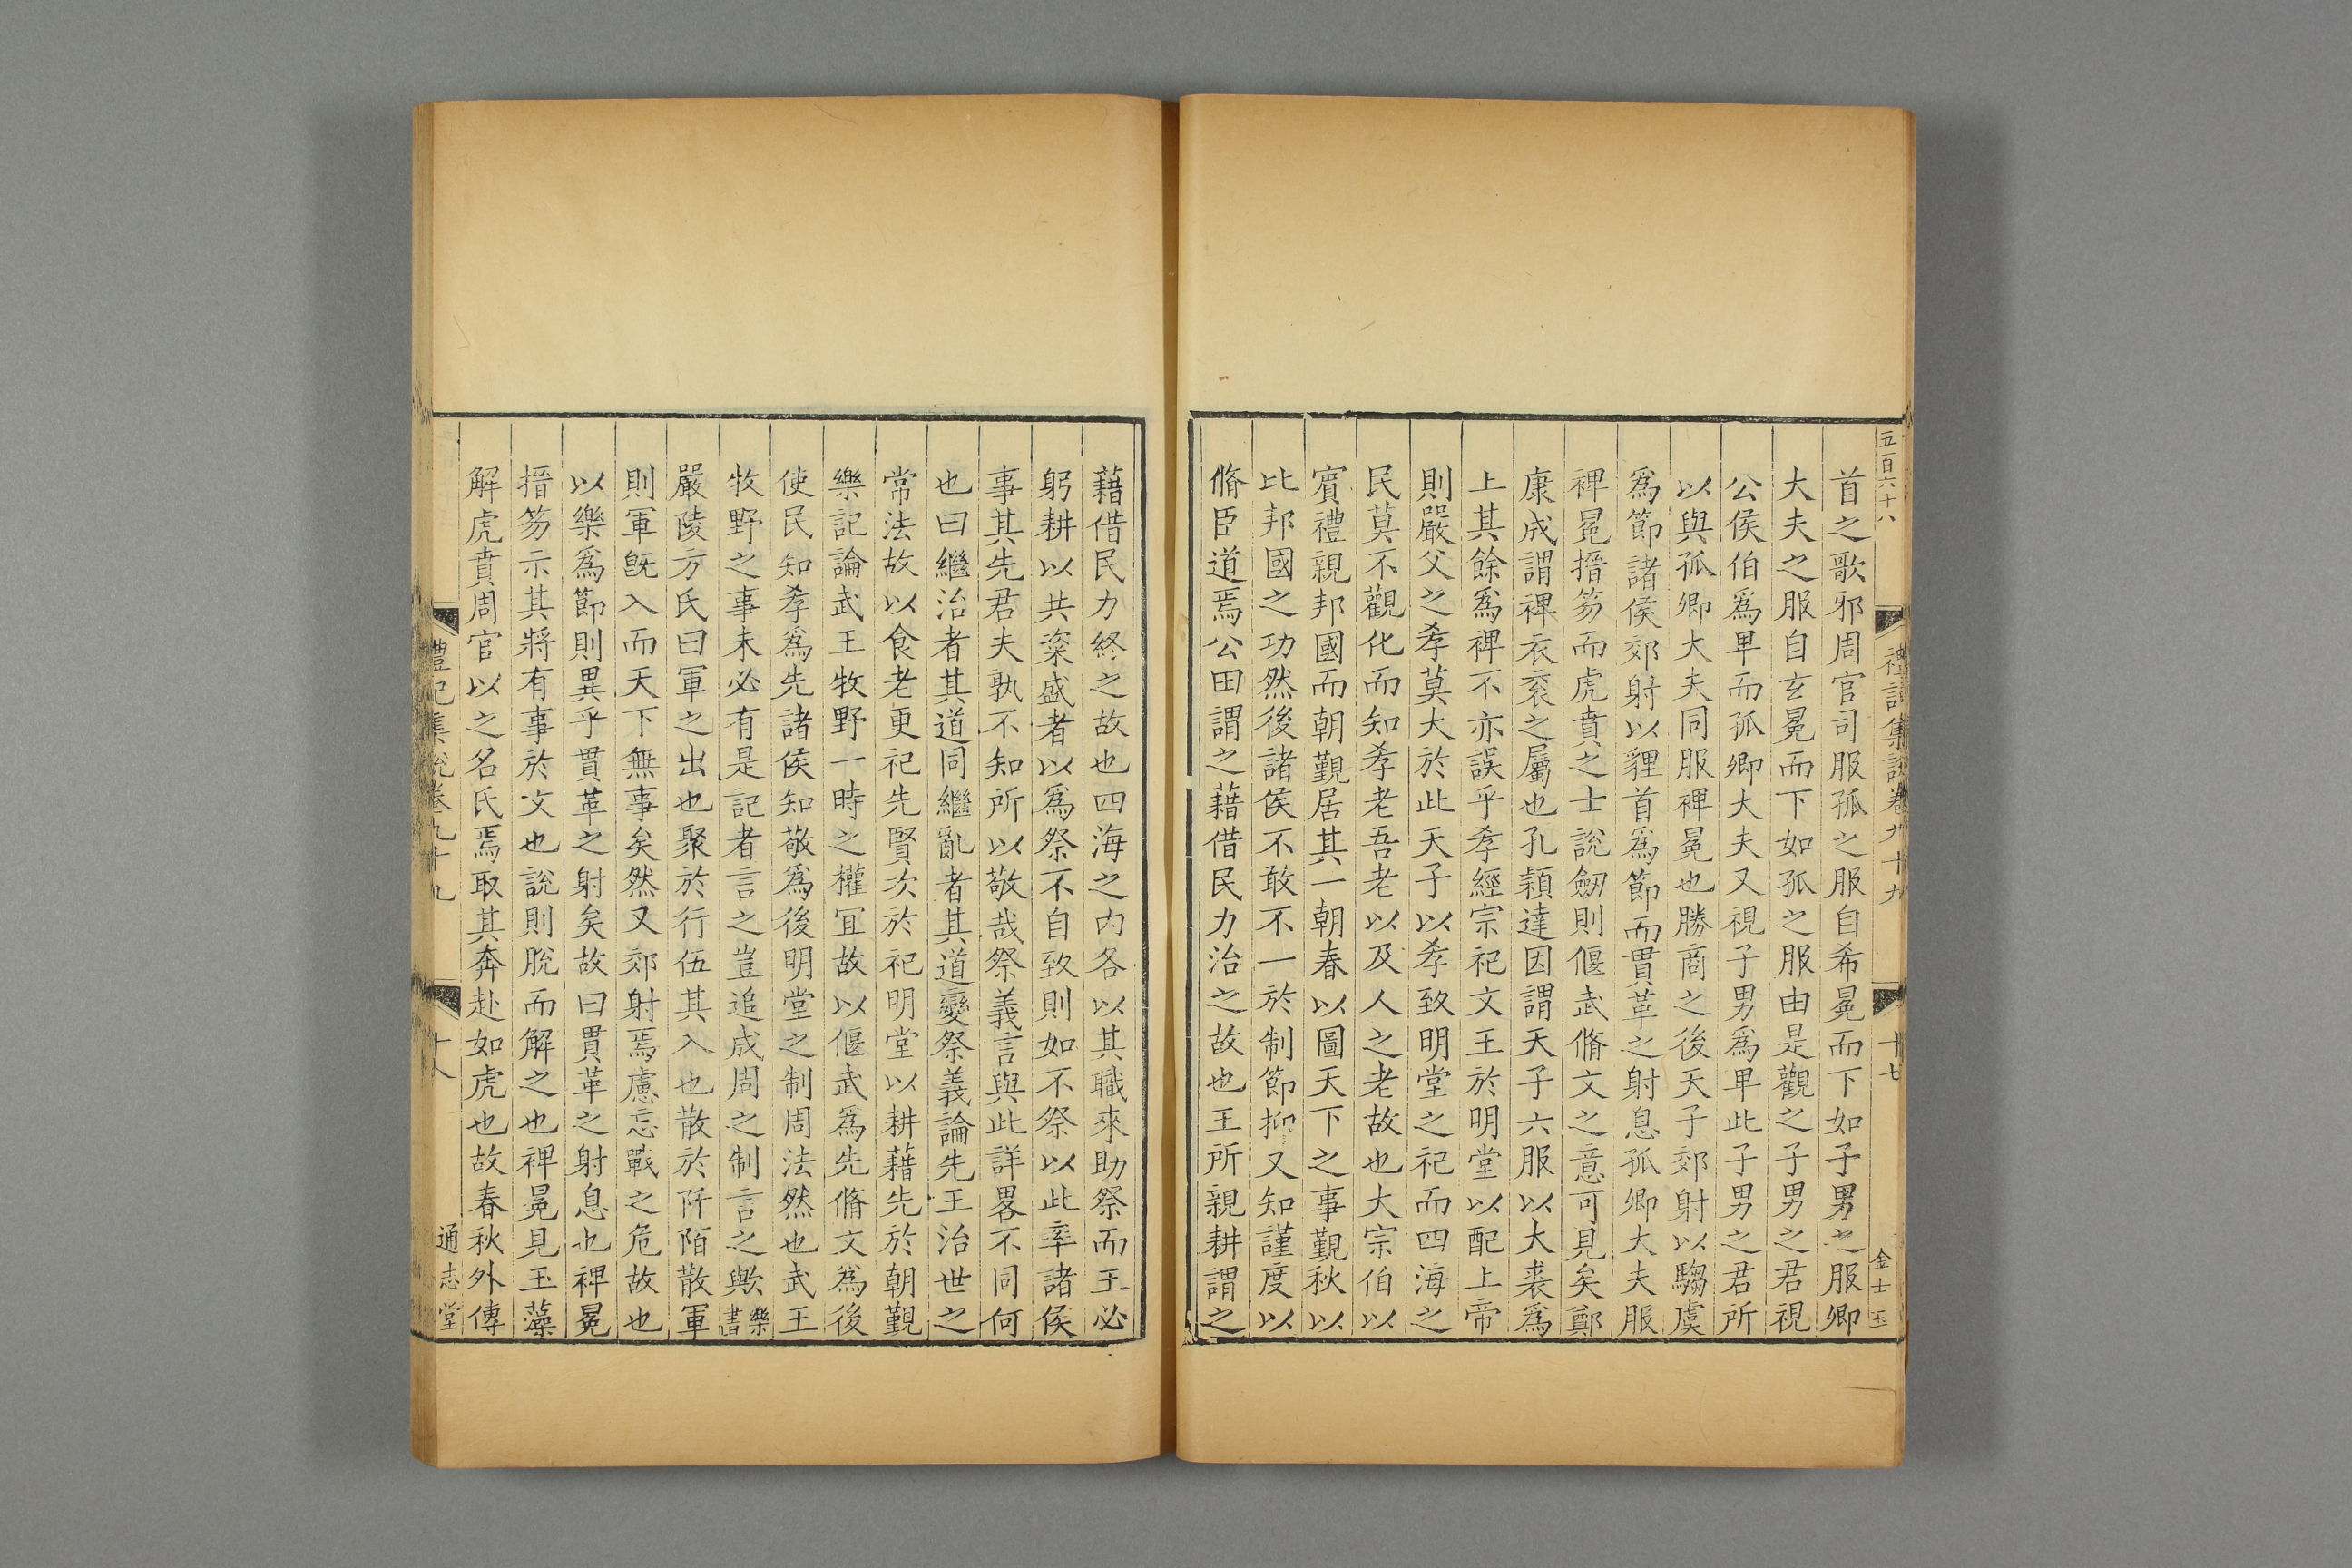 五百六十八
禮記集說卷九十九
十七
金士玉
首之歌邪周官司服孤之服自希冕而下如子男之服卿
大夫之服自玄冕而下如孤之服由是觀之子男之君視
公侯伯爲卑而孤卿大夫又視子男爲卑此子男之君所
以與孤卿大夫同服裨冕也勝商之後天子郊射以騶虞
爲節諸侯郊射以貍首爲節而貫革之射息孤卿大夫服
裨冕搢笏而虎賁之士說劒則偃武脩文之意可見矣鄭
康成謂裨衣衮之屬也孔穎達因謂天子六服以大裘爲
上其餘爲裨不亦誤乎孝經宗祀文王於明堂以配上帝
則嚴父之孝莫大於此天子以孝致明堂之祀而四海之
民莫不觀化而知孝老吾老以及人之老故也大宗伯以
賔禮親邦國而朝覲居其一朝春以圖天下之事覲秋以
比邦國之功然後諸侯不敢不一於制節抑又知謹度以
脩臣道焉公田謂之藉借民力治之故也王所親耕謂之
藉借民力終之故也四海之内各以其職來助祭而王必
躬耕以共粢盛者以爲祭不自致則如不祭以此率諸侯
事其先君夫孰不知所以敬哉祭義言與此詳畧不同何
也曰繼治者其道同繼亂者其道變祭義論先王治世之
常法故以食老更祀先賢次於祀明堂以耕藉先於朝覲
樂記論武王牧野一時之權冝故以偃武爲先脩文爲後
使民知孝爲先諸侯知敬爲後明堂之制周法然也武王
牧野之事未必有是記者言之豈追成周之制言之歟樂書
嚴陵方氏曰軍之出也聚於行伍其入也散於阡陌散軍
則軍旣入而天下無事矣然又郊射焉慮忘戰之危故也
以樂爲節則異乎貫革之射矣故曰貫革之射息也裨冕
搢笏示其將有事於文也說則脫而解之也裨冕見玉藻
解虎賁周官以之名氏焉取其奔赴如虎也故春秋外傳
禮記集說卷九十九
十八
通志堂